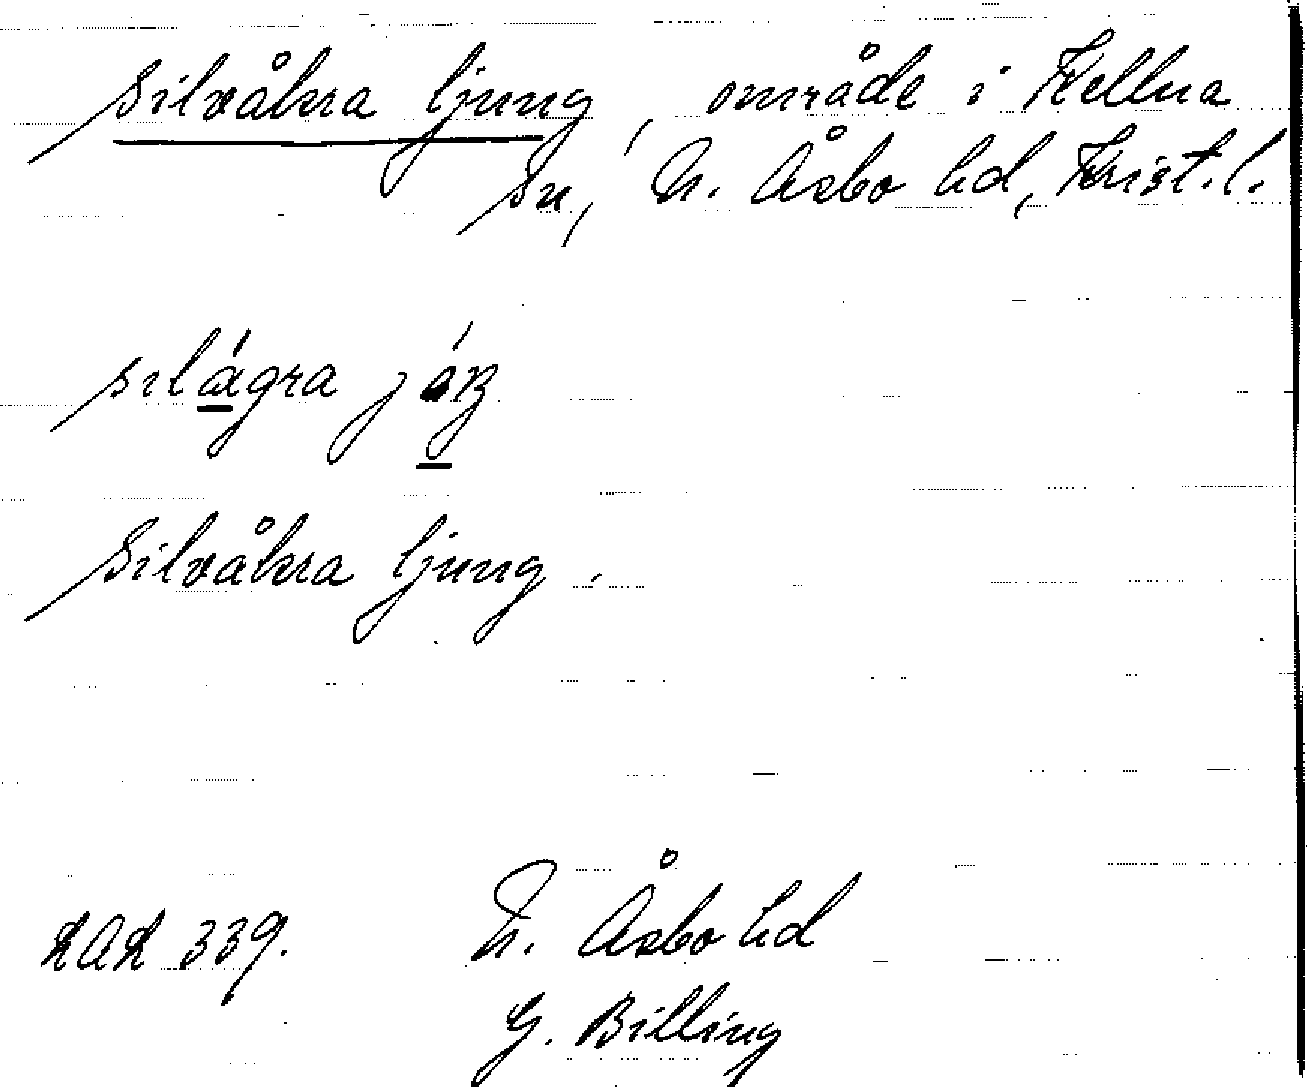 Silvåkra ljung, område i Källna
sn, N. Åsbo hd, Krist. l.
Silvåkra ljung.
LAL 339. N. Åsbo hd
G. Billing